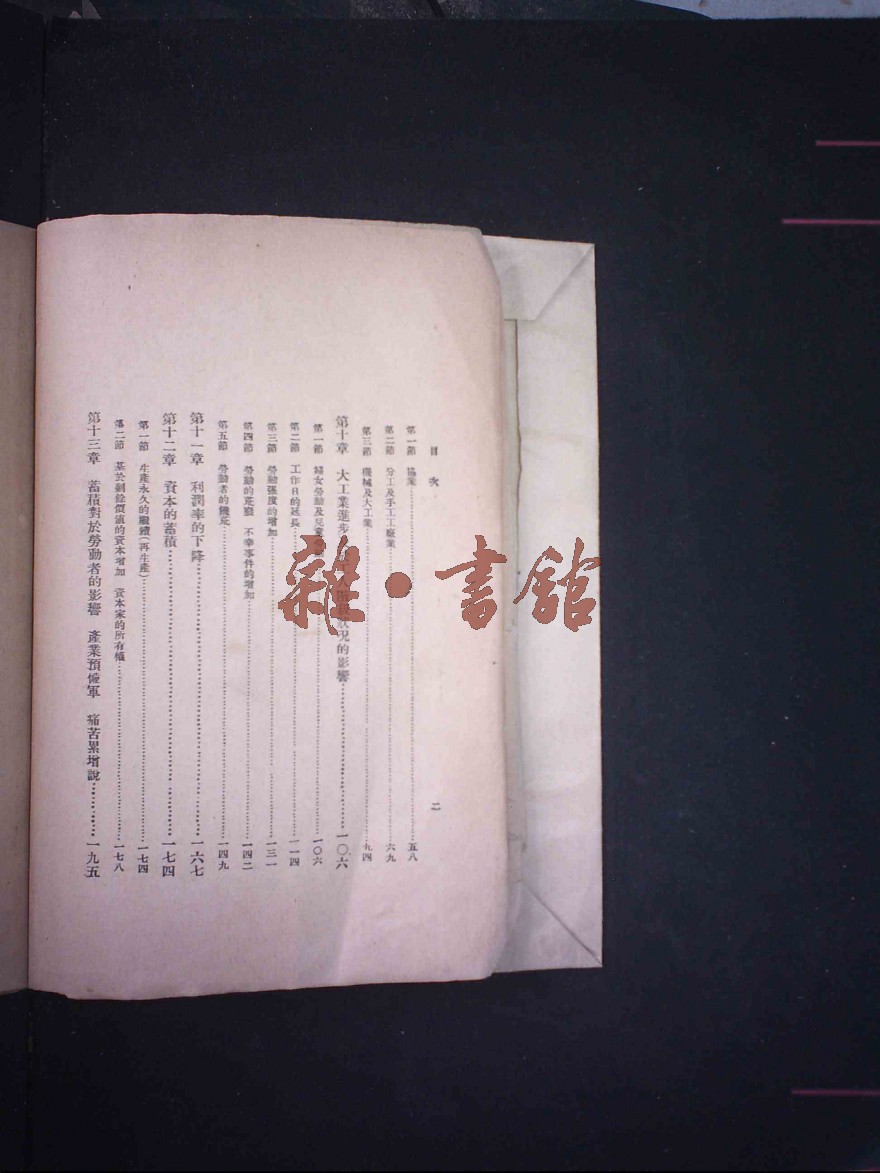 目次 二
第一節 協業……五八
第二節 分工及手工工廠業……六九
第三節 機械及大工業……九四
第十章 大工業進步 狀況的影響……一〇六
第一節 婦女勞動及兒童……一〇六
第二節 工作日的延長……一一四
第三節 勞動强度的增加……一三一
第四節 勞動的 不幸事件的增加……一四二
第五節 勞動者的……一四九
第十一章 利潤率的下降……一六七
第十二章 資本的蓄積……一七四
第一節 生產永久的 (再生產)……一七四
第二節 基於剩餘價值的資本增加 資本家的所有權……一七八
第十三章 蓄積對於勞動者的影響 產業預備軍 痛苦累增說……一九五
雜·書館